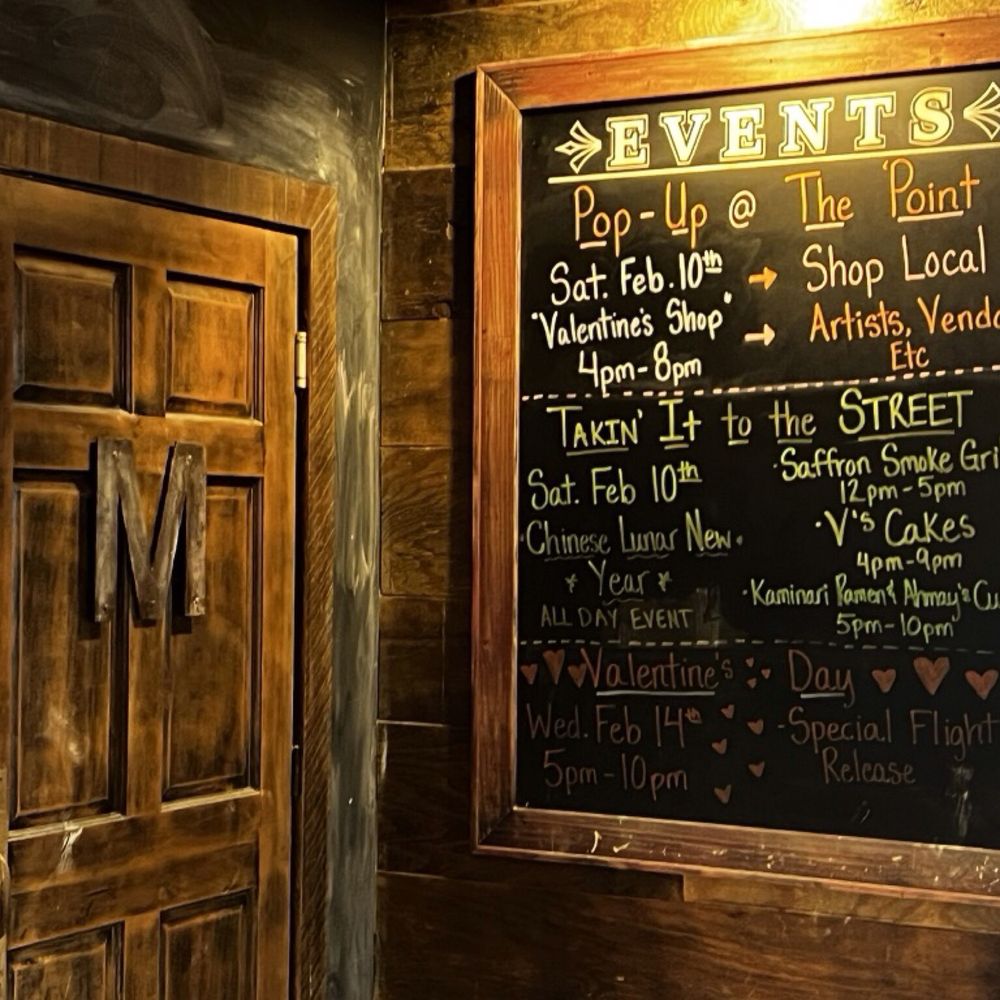 M
EVENTS
Pop-Up @ The Point
Sat. Feb. 10th → Shop Local
"Valentine's Shop" → Artists, Vendo
4pm-8pm
Etc
TAKIN' It to the STREET
Sat. Feb 10th
Chinese Lunar New
* Year *
ALL DAY EVENT
·Saffron Smoke Gri
12pm-5pm
·V's Cakes
4pm-9pm
·Kaminari Ramen & Ahmay's Cu
5pm-10pm
Valentine's Day
Wed. Feb 14th
5pm-10pm
-Special Flight
Release